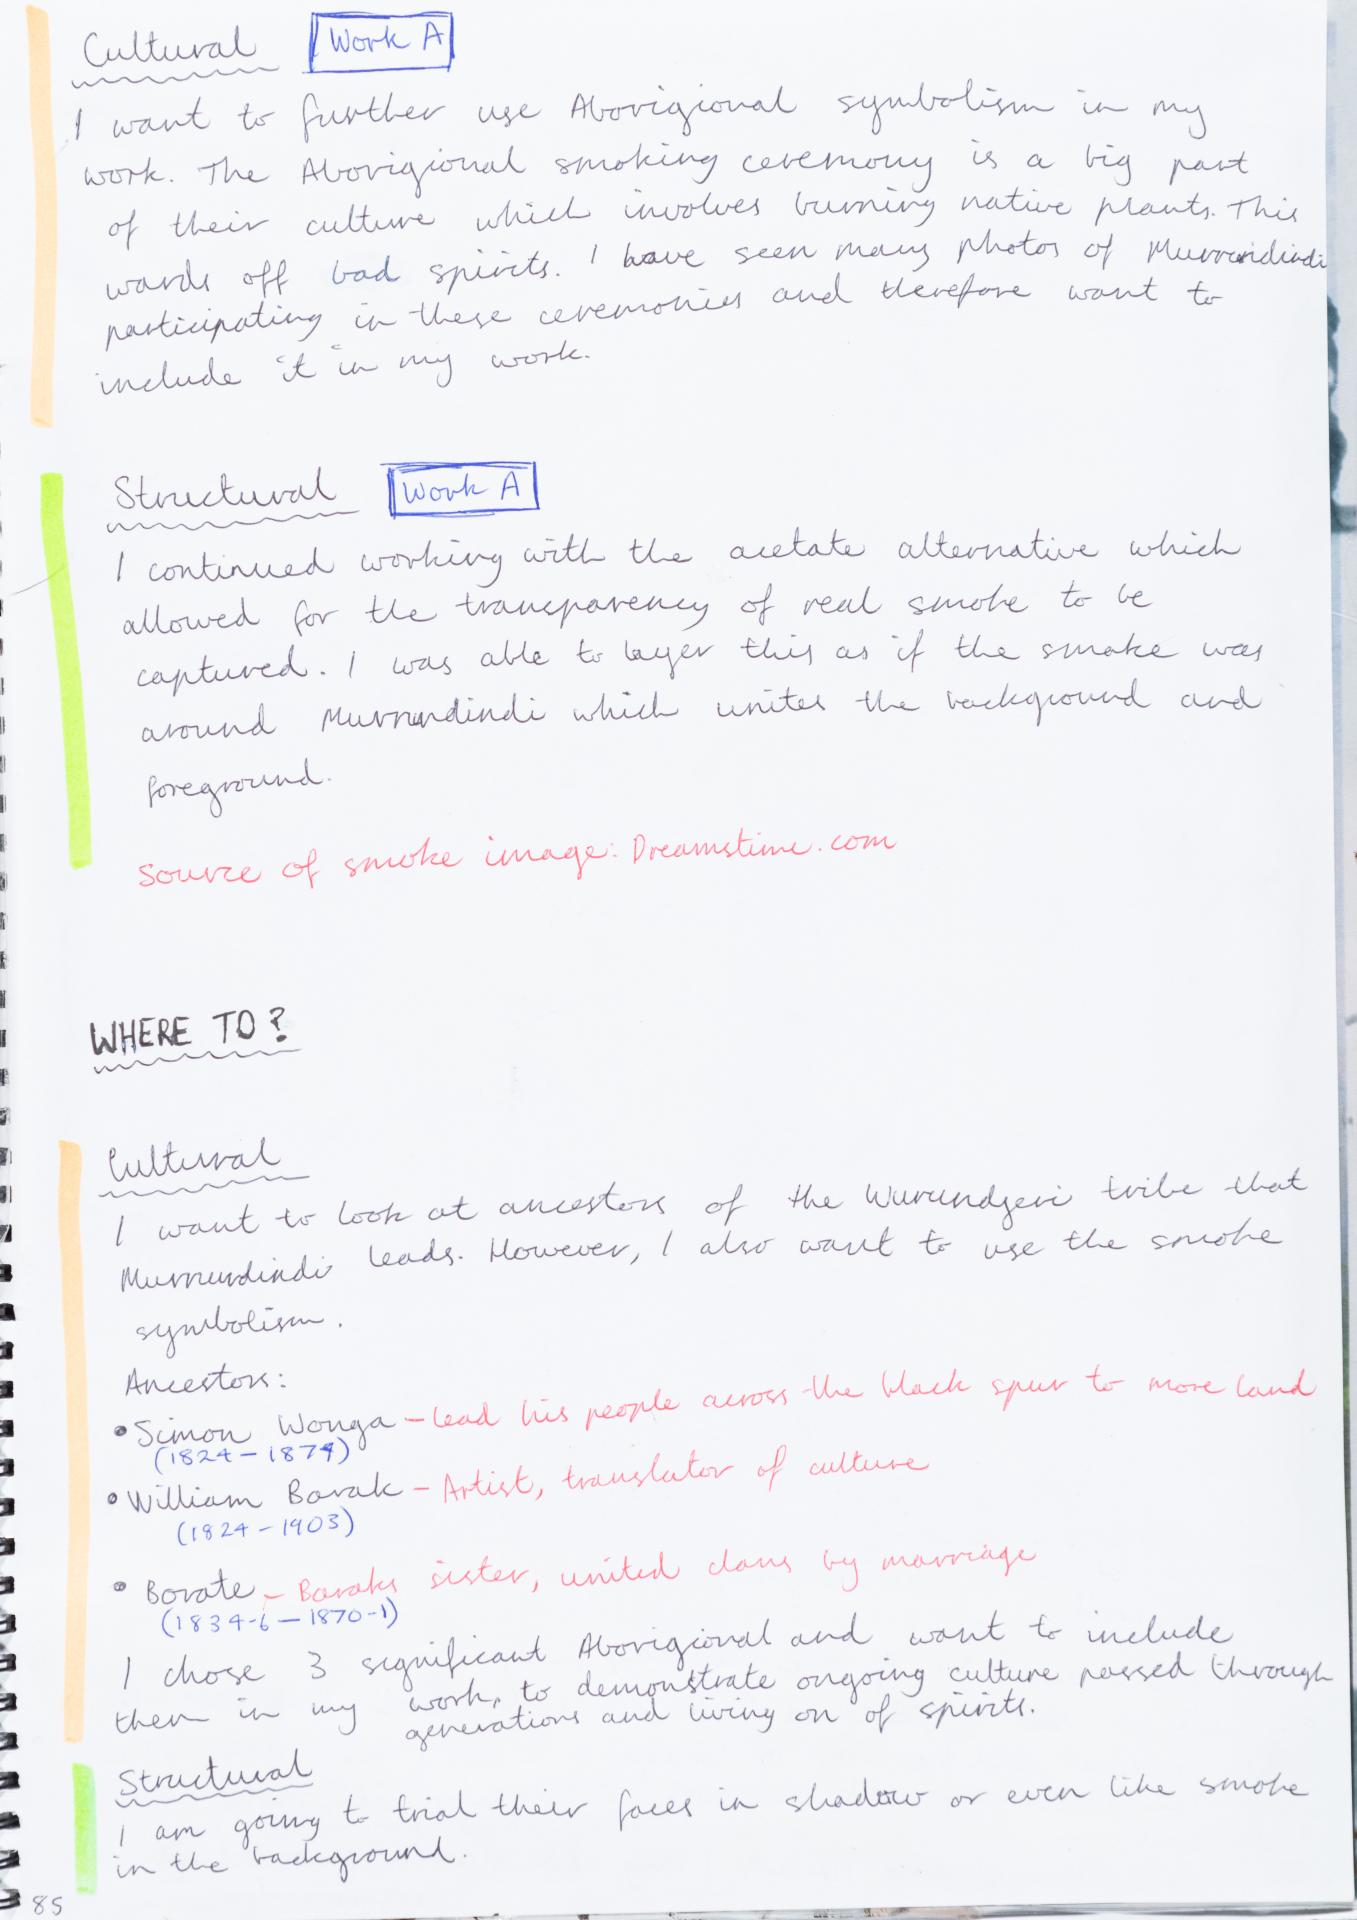 Cultural Work A
I want to further use Aborigional symbolism in my
work. The Aborigional smoking ceremony is a big part
of their culture which involves burning native plants. This
wards off bad spirits. I have seen many photos of Murrundindi
participating in these ceremonies and therefore want to
include it in my work.
Structural Work A
I continued working with the acetate alternative which
allowed for the transparency of real smoke to be
captured. I was able to layer this as if the smoke was
around Murrundindi which unites the background and
foreground.
Source of smoke image: Dreamstime.com
WHERE TO?
Cultural
I want to look at ancestors of the Wurundjeri tribe that
Murrundindi leads. However, I also want to use the smoke
symbolism.
Ancestors:
• Simon Wonga - lead his people across the black spur to more land
(1824 - 1874)
• William Barak - Artist, translator of culture
(1824 - 1903)
• Borate - Baraks sister, united clans by marriage
(1834-6 - 1870-1)
I chose 3 significant Aborigional and want to include
them in my work, to demonstrate ongoing culture passed through
generations and living on of spirits.
Structural
I am going to trial their faces in shadow or even like smoke
in the background.
85